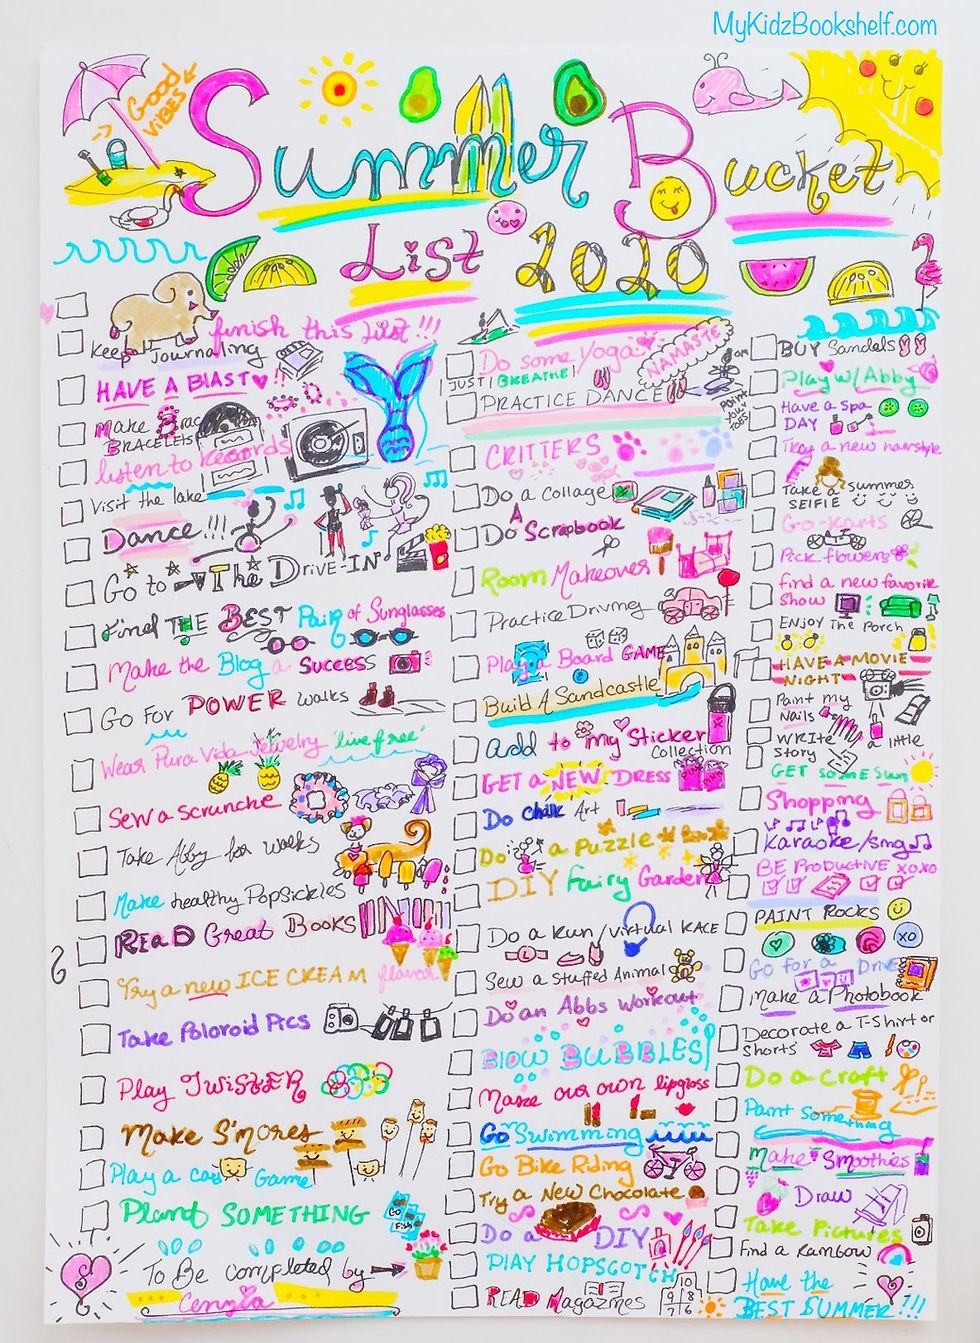 MyKidzBookshelf.com
GOOD VIBES
Summer Bucket
List 2020
finish this List!!!
Keep journaling
HAVE A BLAST!!
Make
BRACELETS
listen to Records
Visit the lake
Dance!!!
Go to The DRIVE-IN
Find THE BEST Pair of Sunglasses
Make the Blog a Success
Go For POWER walks
Wear Pura Vida Jewelry "live free"
Sew a Scrunchie
Take Abby for walks
Make healthy Popsickles
READ Great Books
Try a new ICE CREAM flavor
Take Poloroid Pics
Play TWISTER
Make S'mores
Play a card Game
GO Fish
Plant SOMETHING
To Be completed by
Do some Yoga
NAMASTE
JUST BREATHE!
OM
PRACTICE DANCE
POINT YOUR TOES
CRITTERS
Do a Collage
Do A Scrapbook
Room Makeover
Practice Driving
Play a Board GAME
Build A Sandcastle
Add to my Sticker
Collection
GET a NEW DRESS
Do chalk Art
Do a Puzzle
DIY Fairy Garden
Do a Run/Virtual RACE
Sew a Stuffed Animal
Do an Abbs Workout
BLOW BUBBLES!
Make our own lipgloss
Go Swimming
Go Bike Riding
Try a New Chocolate
Do a DIY
PLAY HOPSCOTCH
READ Magazines
10
9 8
7 6
BUY Sandals
Play w/Abby
Have a Spa
DAY
Try a new hairstyle
Take a summer
SELFIE
Go-Karts
Pick flowers
find a new favorite
Show
ENJOY The PORCH
HAVE A MOVIE
NIGHT
Paint my
Nails
WRITE a little
Story
GET some Sun
Shopping
Karaoke/sing
BE PRODUCTIVE XOXO
PAINT ROCKS
XO
Go for a Drive
Make a Photobook
Decorate a T-Shirt or
Shorts
Do a CRAFT
Paint Something
Make Smoothies
Draw
Take Pictures
Find a Rainbow
Have the
BEST SUMMER!!!